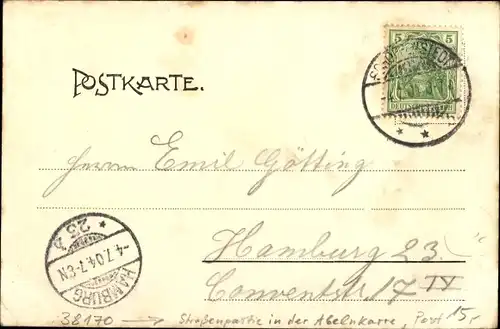 5 5
POSTKARTE.
Herrn Emil Götting
Hamburg 23.
Conventstr 17 IV
* 25 b *
-4.7.04.7-8N
HAMBURG
38170 → Straßenpartie in der Abelnkarre, Post 15,-